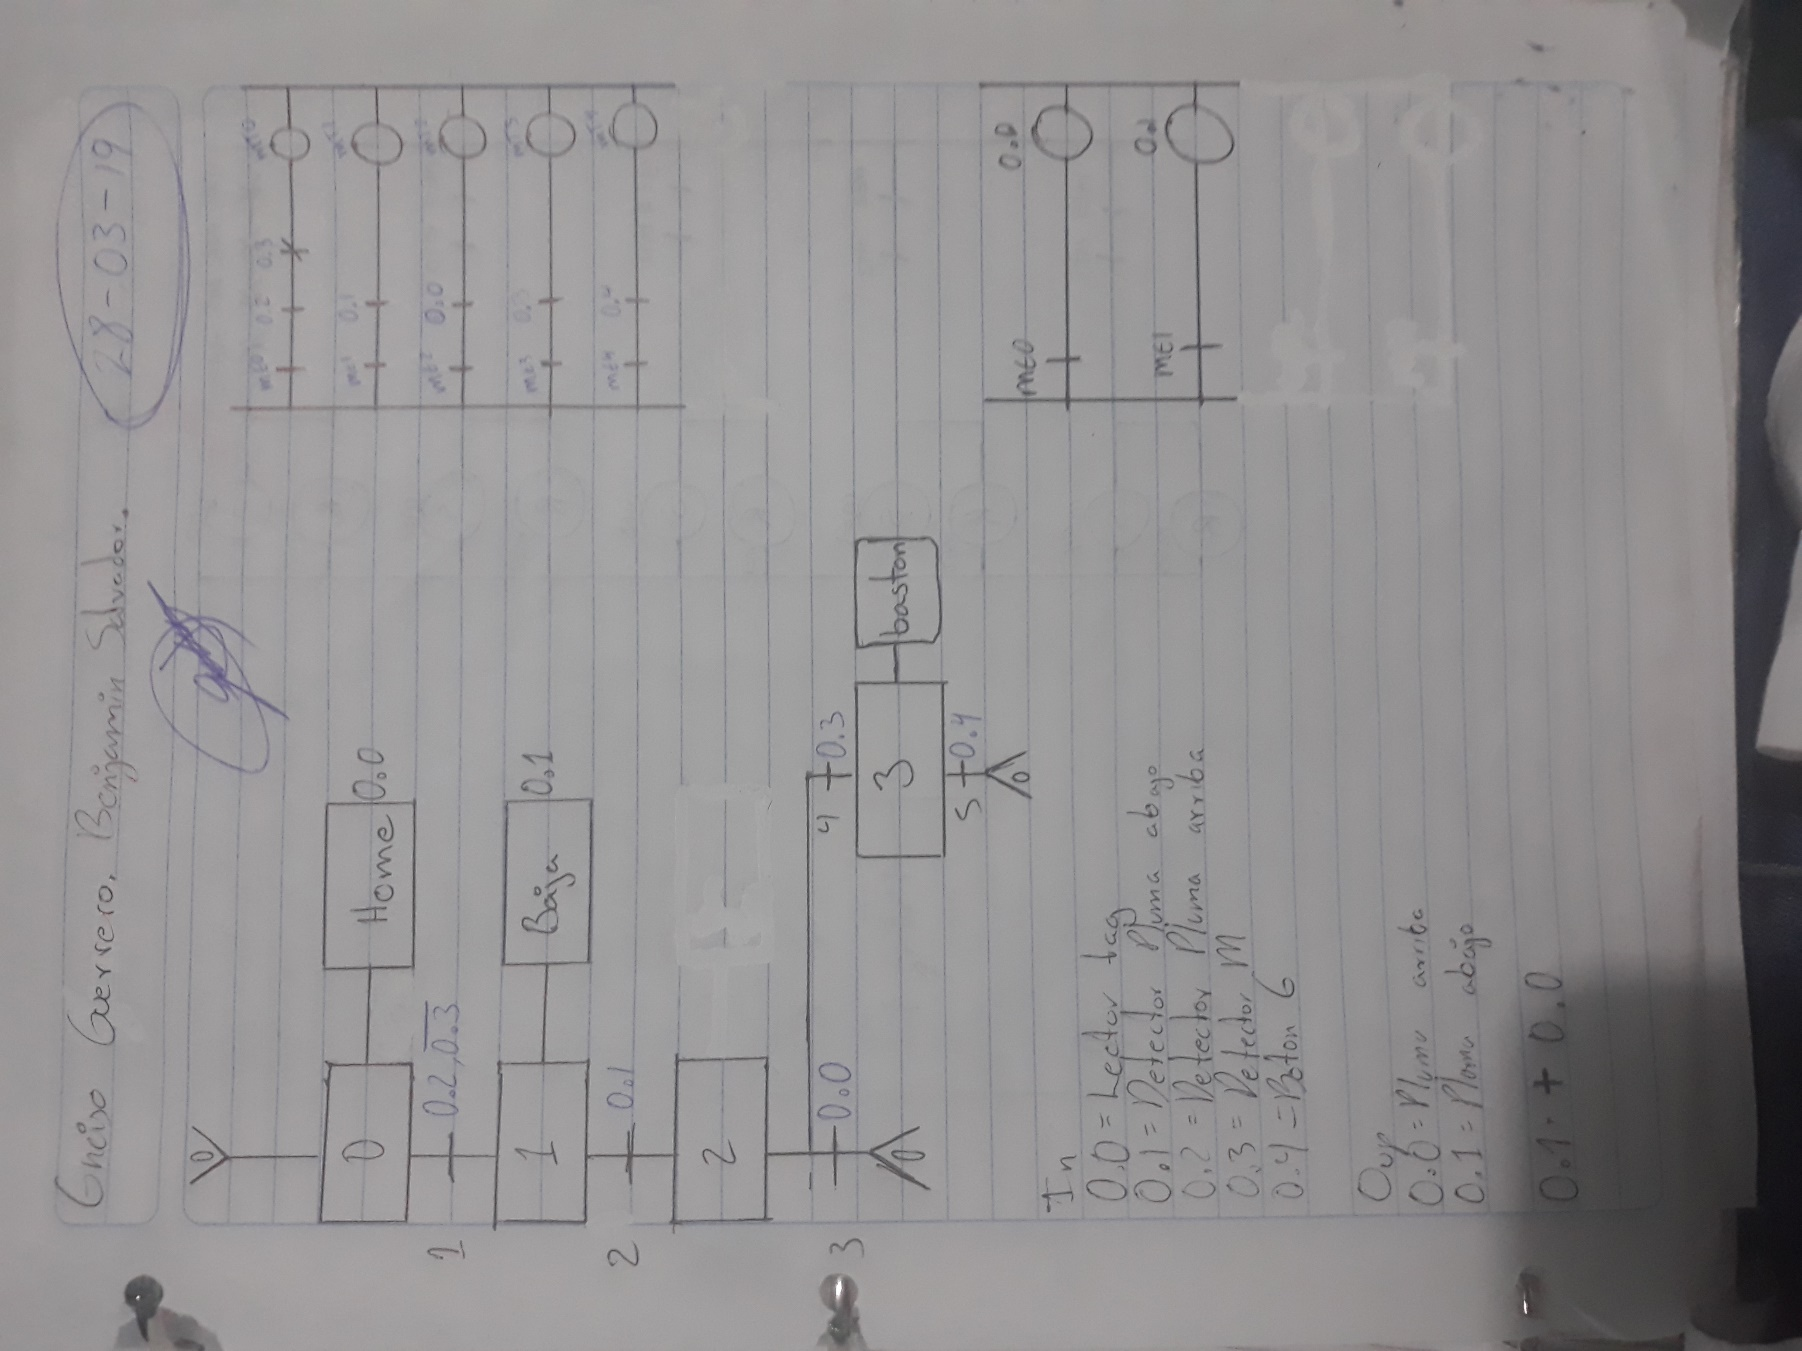 Enciso Guerrero, Benjamin Salvador.
28-03-19
0
0
Home
0.0
1
0.2, 0.3
1
Baja
0.1
2
0.1
2
3
0.0
4
0.3
0
3
baston
5
0.4
0
ME0 0.2 0.3
ME1 0.1
ME2 0.0
ME3 0.3
ME4 0.4
ME0
0.0
ME1
In
0.0 = Lector tag
0.1 = Detector Pluma abajo
0.2 = Detector Pluma arriba
0.3 = Detector M
0.4 = Boton G
Oup
0.0 = Pluma arriba
0.1 = Pluma abajo
0.1 · + 0.0